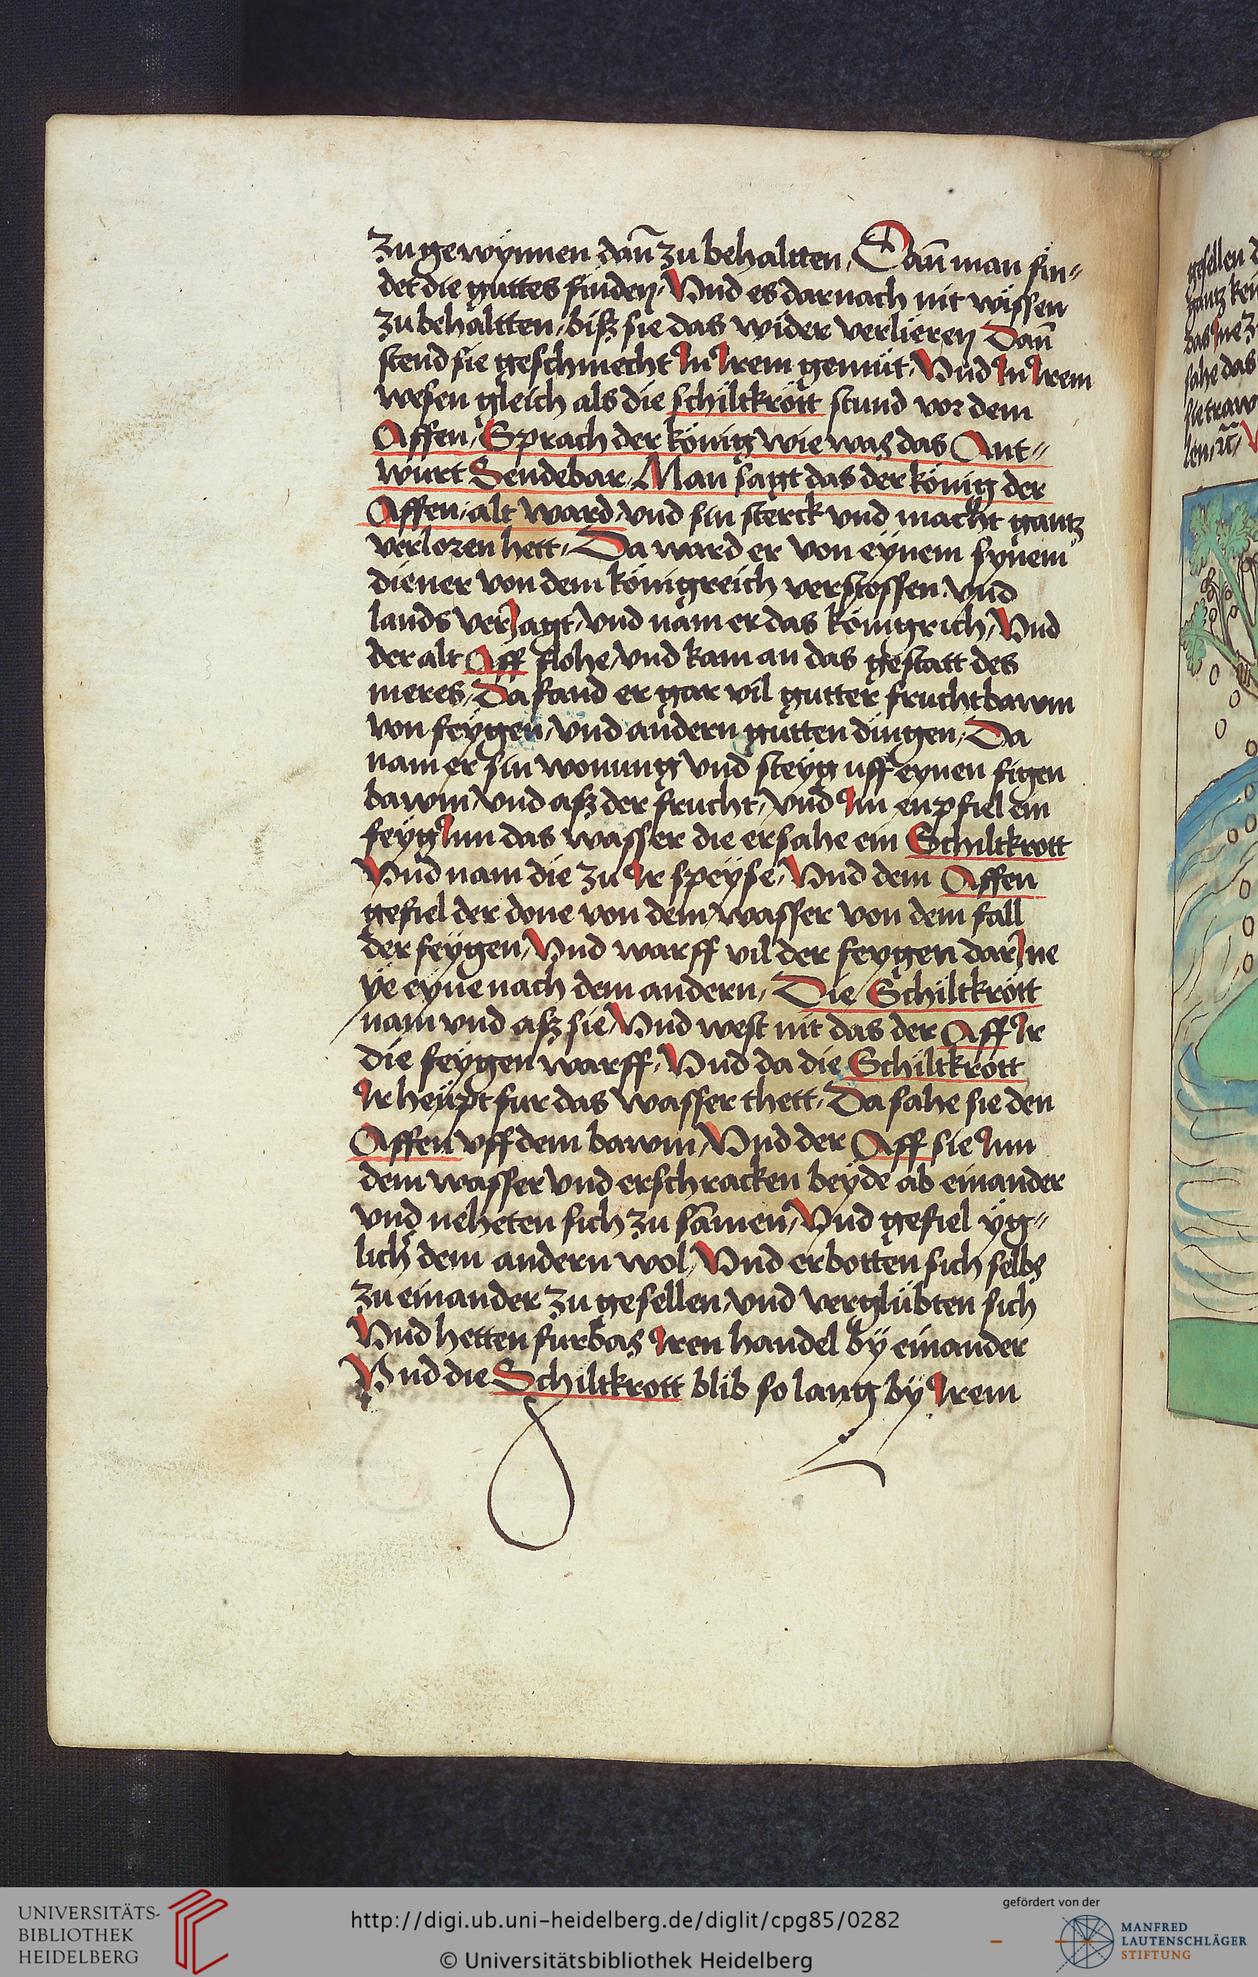 zu gewynnen dañ zu behaltten, Dañ man fin=
det die guttes finden, Vnd es darnach nit wissen
zu behaltten, biß sie das wider verlieren Dañ
stend sie geschmecht In Irem gemüt, Vnd In Irem
wesen gleich als die schiltkrött stund vor dem
Affen, Sprach der könig wie was das Ant=
wurt Sendebar, Man sagt das der könig der
Affen, alt ward, vnd sin sterck vnd macht gantz
verloren hett, Da ward er von eynem synem
diener von dem königreich verstossen vnd
lands verJagt, vnd nam er das königrich, Vnd
der alt Aff flohe, vnd kam an das gestatt des
meres, Da fand er gar vil gutter fruchtbawm
von feygen, vnd andern gutten dingen, Da
nam er sin wonung vnd steyg uff eynen figen
bawm vnd aß der frucht, vnd Im enpfiel ein
feyg Inn das wasser die ersahe ein Schiltkrott
Vnd nam die zu Ir speyse, Vnd dem Affen
gefiel der done von dem wasser von dem fall
der feygen, Vnd warff vil der feygen darJne
ye eyne nach dem andern, Die Schiltkrött
nam vnd aß sie, Vnd west nit das der Aff Ir
die feygen warff, Vnd da die Schiltkrott
Ir heupt fur das wasser thett, Da sahe sie den
Affen vff dem bawm, Vnd der Aff sie Inn
dem wasser vnd erschracken beyde ab einander
vnd neheten sich zu samen, Vnd gefiel yg=
lichs dem andern wol, Vnd erbotten sich selbs
zu einander zu gesellen, vnd verglübten sich
Vnd hetten furbas Iren handel by einander
Vnd die Schiltkrott blib so lang by Irem
gesellen
gantz
das Jne
sahe das
UNIVERSITÄTS-
BIBLIOTHEK
HEIDELBERG
http://digi.ub.uni-heidelberg.de/diglit/cpg85/0282
© Universitätsbibliothek Heidelberg
gefördert von der
MANFRED
LAUTENSCHLÄGER
STIFTUNG